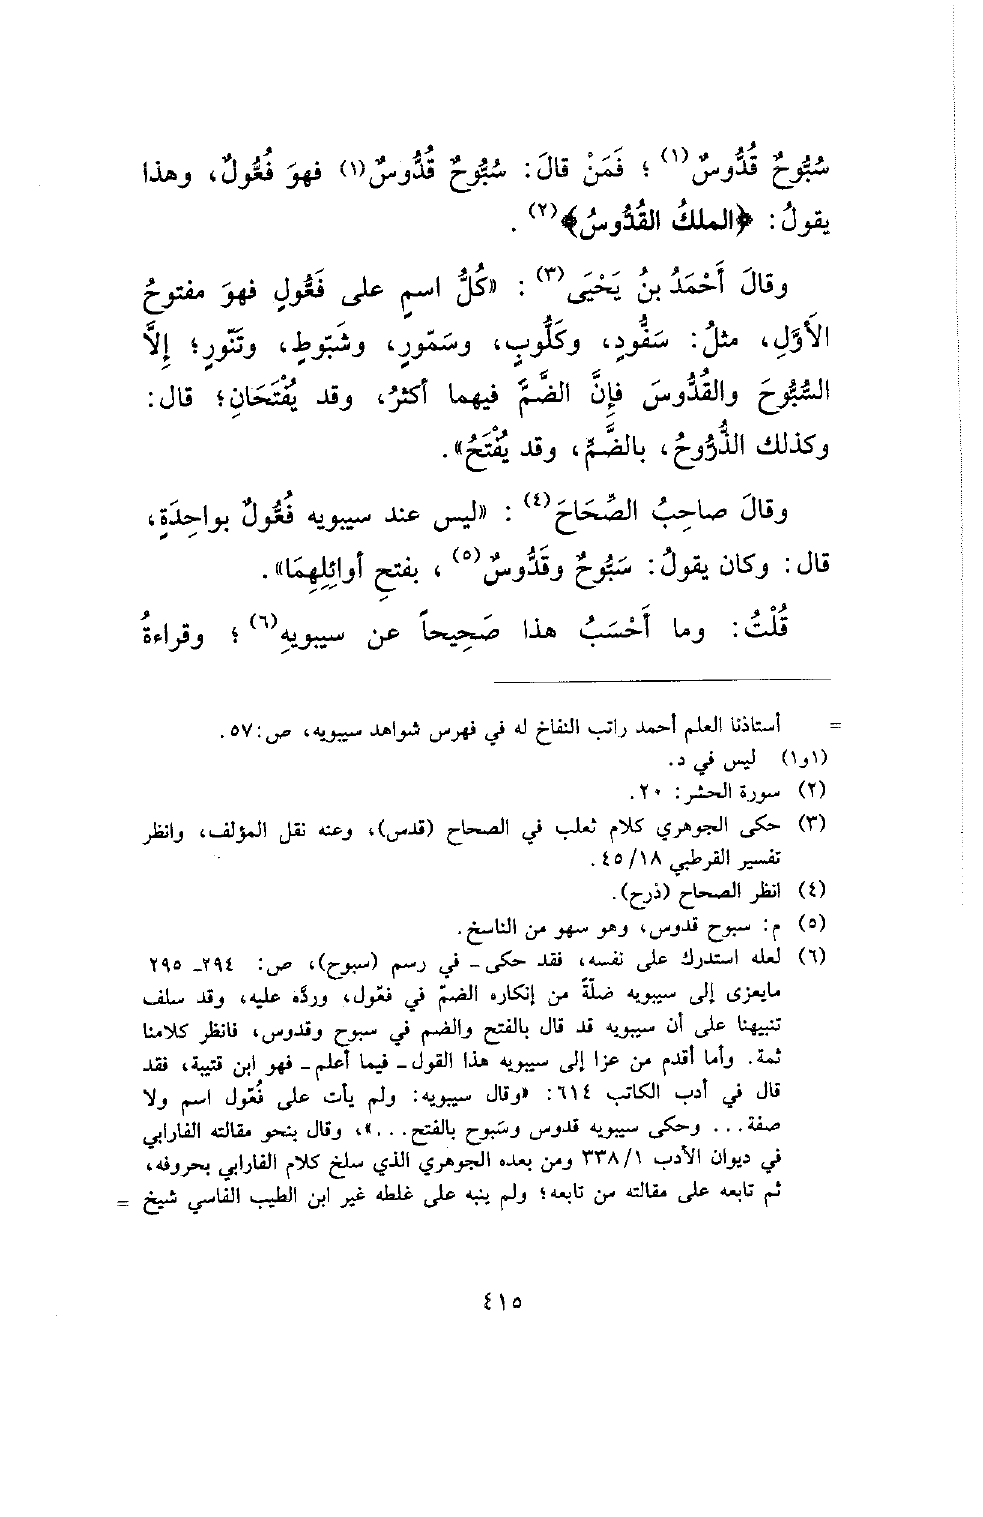 سُبُّوحٌ قُدُّوسٌ(١) ؛ فَمَنْ قالَ: سُبُّوحٌ قُدُّوسٌ(١) فهوَ فُعُّولٌ، وهذا
يقولُ: ﴿الملكُ القُدُّوسُ﴾(٢) .
وقالَ أَحْمَدُ بنُ يَحْيَى(٣) : «كُلُّ اسمٍ على فَعُّولٍ فهوَ مفتوحُ
الأَوَّلِ، مثلُ: سَفُّودٍ، وكَلُّوبٍ، وسَمّورٍ، وشَبّوطٍ، وتَنّورٍ؛ إِلَّا
السُّبُّوحَ والقُدُّوسَ فإِنَّ الضَّمَّ فيهما أكثرُ، وقد يُفْتَحَانِ؛ قال:
وكذلك الذُّرُّوحُ، بالضَّمِّ، وقد يُفْتَحُ».
وقالَ صاحِبُ الصِّحَاحَ(٤) : «ليس عند سيبويه فُعُّولٌ بواحِدَةٍ،
قال: وكان يقولُ: سَبُّوحٌ وقَدُّوسٌ(٥) ، بفتحِ أوائِلِهِمَا».
قُلْتُ: وما أَحْسَبُ هذا صَحِيحاً عن سيبويهِ(٦) ؛ وقراءةُ
= أستاذنا العلم أحمد راتب النفاخ له في فهرس شواهد سيبويه، ص: ٥٧ .
(١و١) ليس في د.
(٢) سورة الحشر: ٢٠.
(٣) حكى الجوهري كلام ثعلب في الصحاح (قدس)، وعنه نقل المؤلف، وانظر
تفسير القرطبي ٤٥/١٨ .
(٤) انظر الصحاح (ذرح).
(٥) م: سبوح قدوس، وهو سهو من الناسخ.
(٦) لعله استدرك على نفسه، فقد حكى - في رسم (سبوح)، ص: ٢٩٤ـ ٢٩٥
مايعزى إلى سيبويه ضلّةً من إنكاره الضمّ في فعّول، وردّه عليه، وقد سلف
تنبيهنا على أن سيبويه قد قال بالفتح والضم في سبوح وقدوس، فانظر كلامنا
ثمة. وأما أقدم من عزا إلى سيبويه هذا القول - فيما أعلم - فهو ابن قتيبة، فقد
قال في أدب الكاتب ٦١٤: «وقال سيبويه: ولم يأت على فُعّول اسم ولا
صفة... وحكى سيبويه قدوس وسَبوح بالفتح...»، وقال بنحو مقالته الفارابي
في ديوان الأدب ٣٣٨/١ ومن بعده الجوهري الذي سلخ كلام الفارابي بحروفه،
ثم تابعه على مقالته من تابعه؛ ولم ينبه على غلطه غير ابن الطيب الفاسي شيخ =
٤١٥